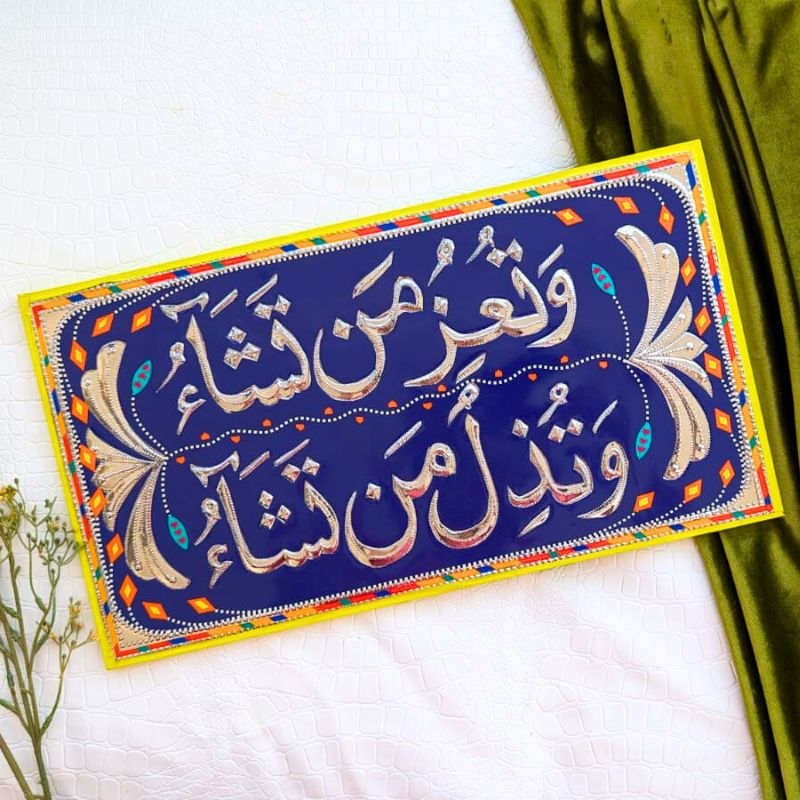 وَتُعِزُّ مَن تَشَآءُ
وَتُذِلُّ مَن تَشَآءُ